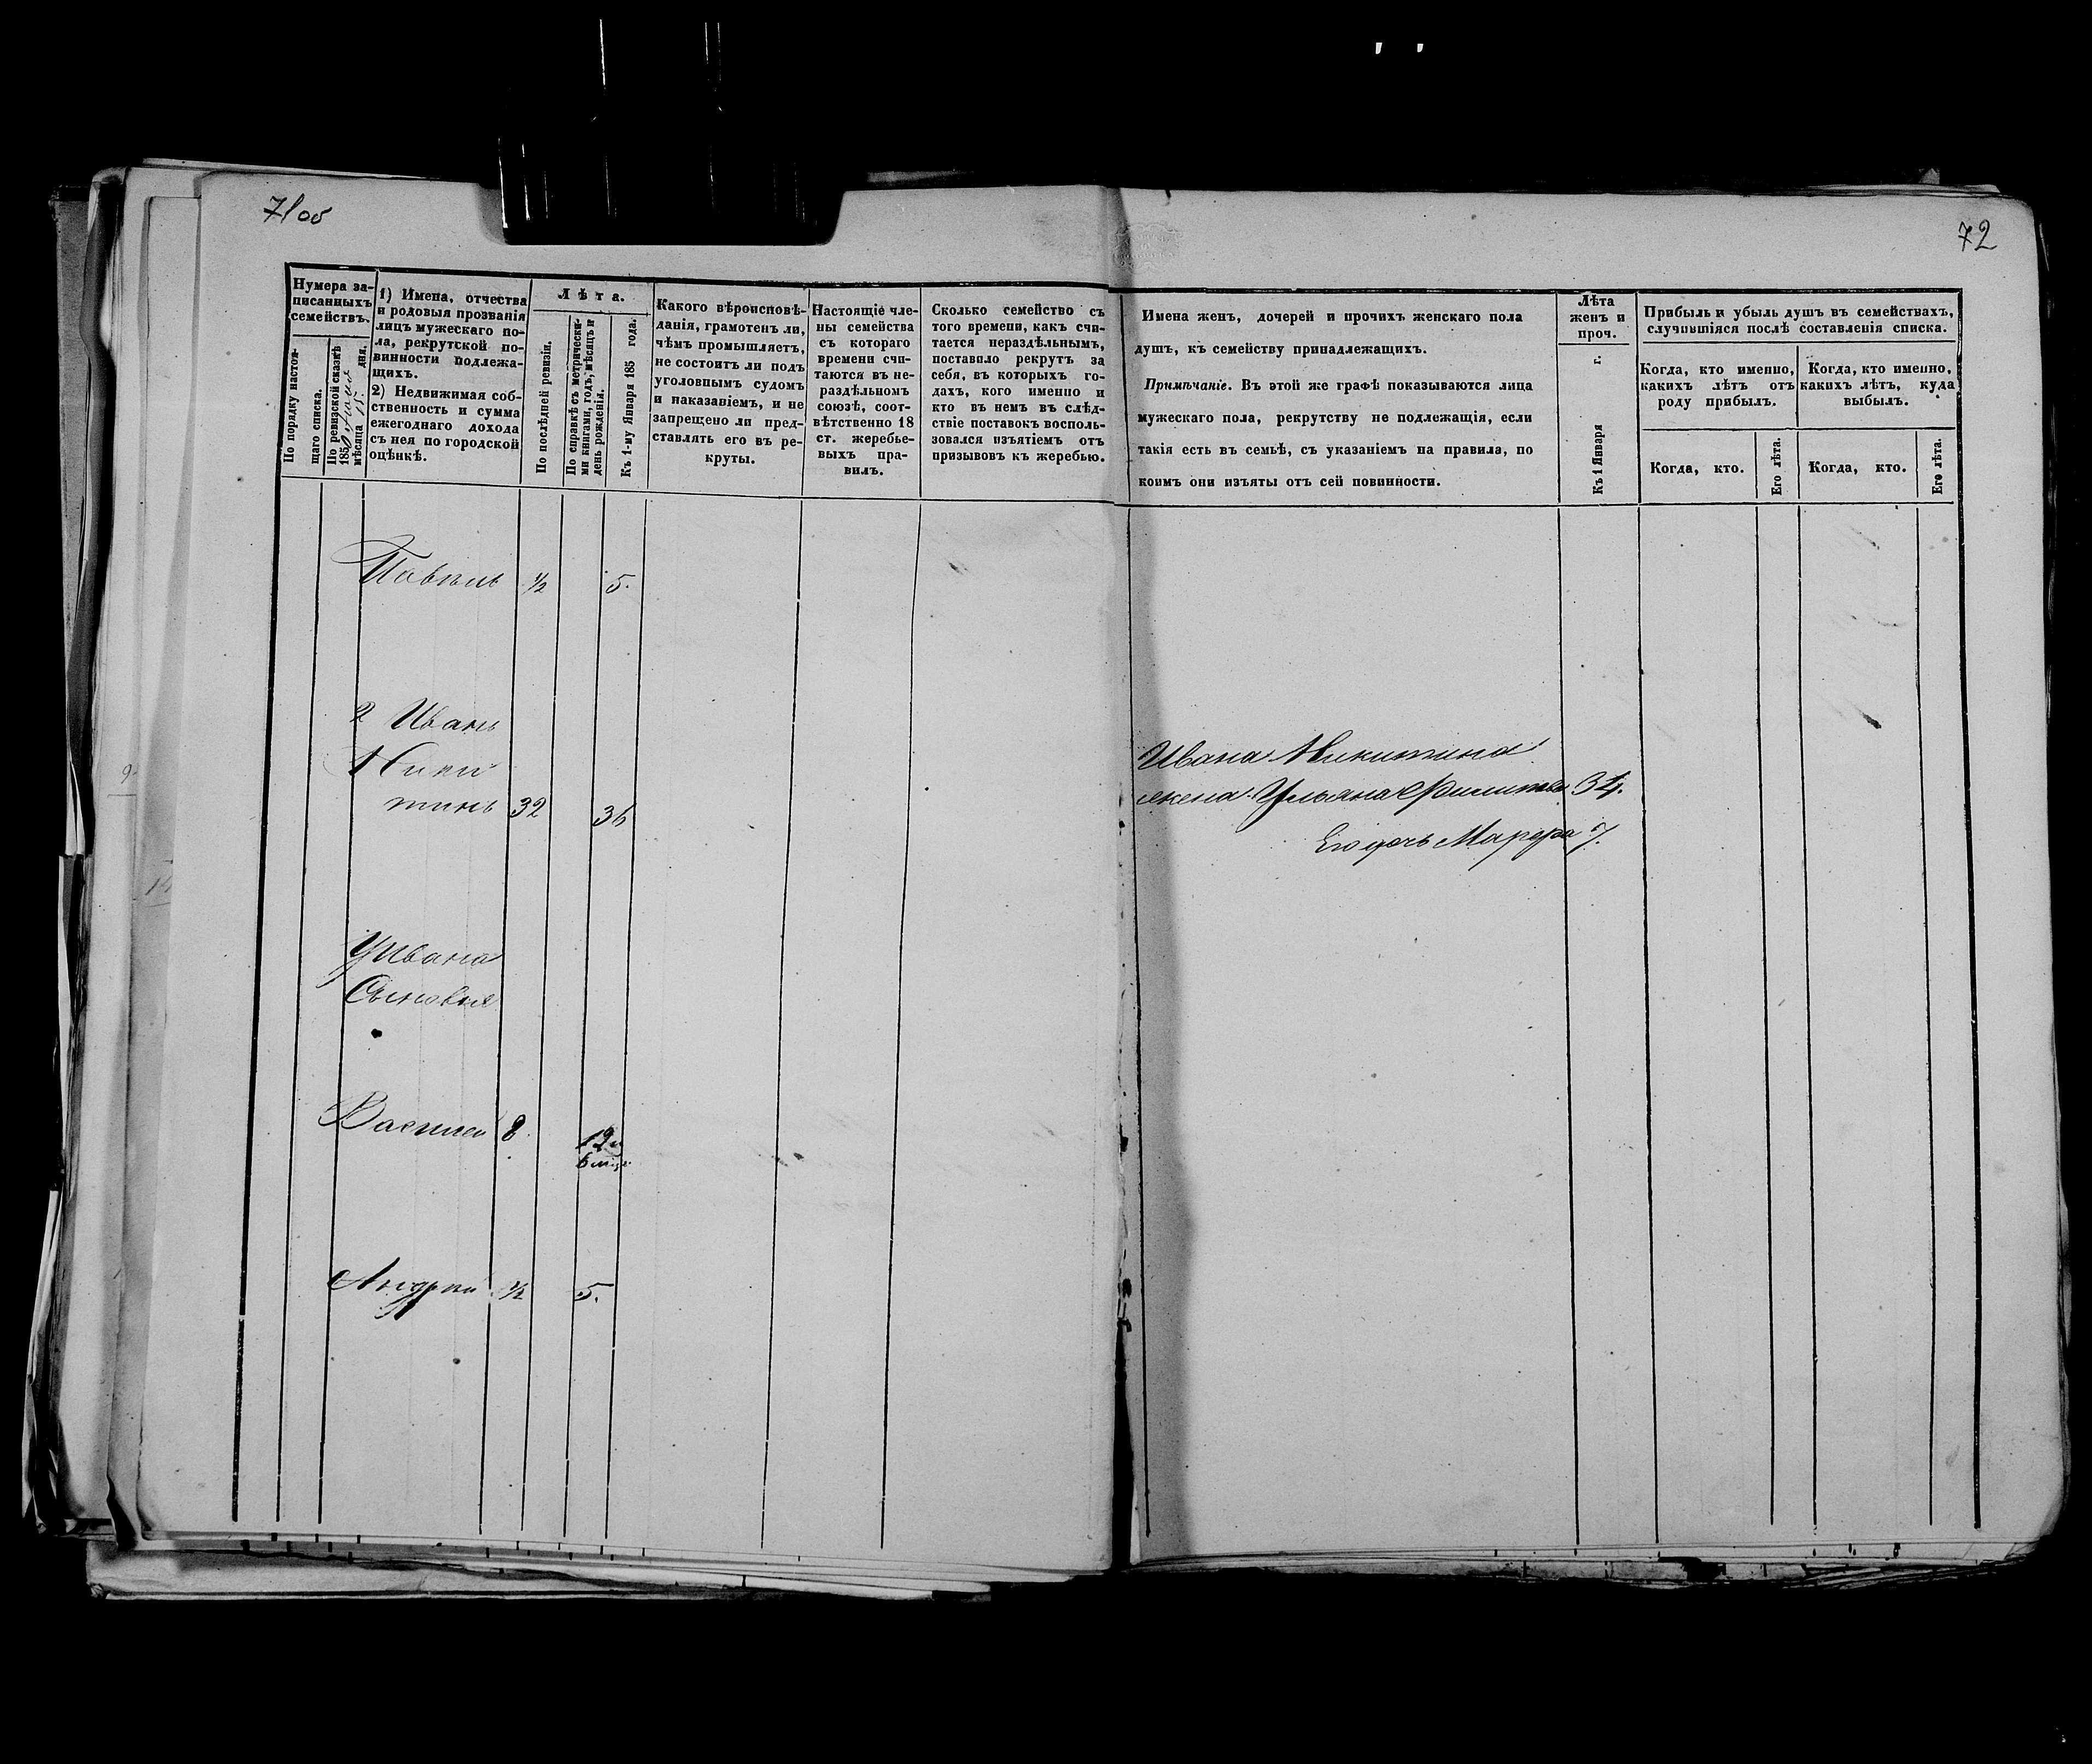 71об
72
Нумера за-
писанныхъ
семействъ.
По порядку настоя-
щаго списка.
По ревизской сказкѣ
1850
мѣсяца 15. дня.
1) Имена, отчества
и родовыя прозванія
лицъ мужескаго по-
ла, рекрутской по-
винности подлежа-
щихъ.
2) Недвижимая соб-
ственность и сумма
ежегоднаго дохода
съ нея по городской
оцѣнкѣ.
Лѣта.
По послѣдней ревизіи.
По справкѣ съ метрически-
ми книгами, годъ, мѣсяцъ и
день рожденія.
Къ 1-му Января 185 года.
Какого вѣроисповѣ-
данія, грамотенъ ли,
чѣмъ промышляетъ,
не состоитъ ли подъ
уголовнымъ судомъ
и наказаніемъ, и не
запрещено ли пред-
ставлять его въ ре-
круты.
Настоящіе чле-
ны семейства
съ котораго
времени счи-
таются въ не-
раздѣльномъ
союзѣ, соот-
вѣтственно 18
ст. жеребье-
выхъ пра-
вилъ.
Сколько семейство съ
того времени, какъ счи-
тается нераздѣльнымъ,
поставило рекрутъ за
себя, въ которыхъ го-
дахъ, кого именно и
кто въ немъ въ слѣд-
ствіе поставокъ восполь-
зовался изъятіемъ отъ
призывовъ къ жеребью.
Имена женъ, дочерей и прочихъ женскаго пола
душъ, къ семейству принадлежащихъ.
Примѣчаніе. Въ этой же графѣ показываются лица
мужескаго пола, рекрутству не подлежащія, если
такія есть въ семьѣ, съ указаніемъ на правила, по
коимъ они изъяты отъ сей повинности.
Лѣта
женъ и
проч.
Къ 1 Января г.
Прибыль и убыль душъ въ семействахъ,
случившіяся послѣ составленія списка.
Когда, кто именно,
какихъ лѣтъ отъ
роду прибылъ.
Когда, кто именно,
какихъ лѣтъ, куда
выбылъ.
Когда, кто.
Его лѣта.
Когда, кто.
Его лѣта.
Павелъ ½ 5.
2 Иванъ
Ники
тинъ 32 36
Ивана Никитина
жена Ульяна Филипова 34.
Его дочь Марфа 7.
У Ивана
Сыновья
Василей 8 12 и
6 міце
Андрей ½ 5.